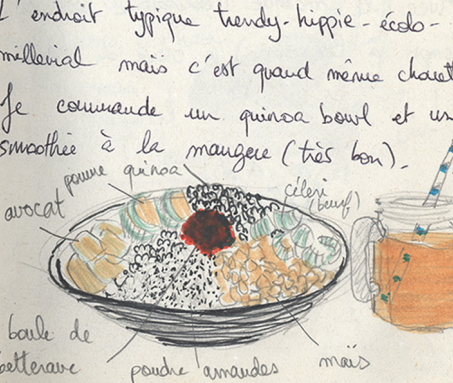 L'endroit typique trendy-hippie-écolo-
millenial maïs c'est quand même chouett
Je commande un quinoa bowl et un
smoothie à la mangue (très bon).
pomme quinoa
céleri
(beurf)
avocat
boule de
betterave
poudre amandes maïs